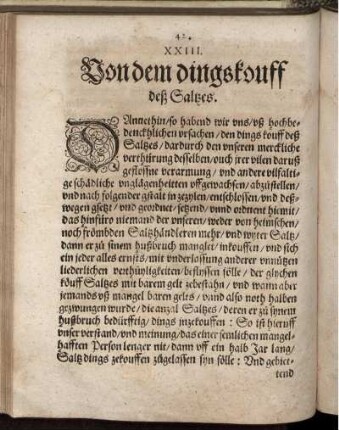 42.
XXIII.
Von dem dingskouff
deß Saltzes.
DAnnethin/so habend wir vns/vß hochbe-
denckhlichen vrsachen/den dings kouff deß
Saltzes/dardurch den vnseren merckliche
verthürung desselben/ouch jrer vilen daruß
geflossne verarmung/vnd andere vilfalti-
ge schädliche vnglägenheitten vffgewachsen/abzüstellen/
vnd nach folgender gstalt in zezylen/entschlossen/vnd deß-
wegen gsetzt/vnd geordnet/setzend/vnnd ordnent hiemit/
das hinfüro niemand der vnseren/weder von heimschen/
noch frömbden Saltzhändleren mehr/vnd wyter Saltz/
dann er zů sinem hußbruch manglet/inkouffen/vnd sich
ein jeder alles ernsts/mit vnderlassung anderer vnnützen
liederlichen verthüwligkeiten/beflyssen sölle/der glychen
köuff Saltzes mit barem gelt zebestahn/vnd wann aber
jemands vß mangel baren gelts/vnnd also noth halben
gezwungen wurde/die anzal Saltzes/deren er zů synem
hußbruch bedürfftig/dings inzekouffen: So ist hieruff
vnser verstand/vnd meinung/das einer semlichen mangel-
hafften Person lenger nit/dann vff ein halb Jar lang/
Saltz dings zekouffen zůgelassen syn sölle: Vnd gebiet-
tend